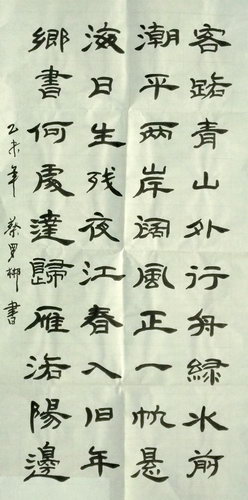 客路青山外行舟緑水前
潮平两岸阔風正一帆悬
海日生残夜江春入旧年
鄉書何處達歸雁洛陽邊
乙未年 蔡 郴書